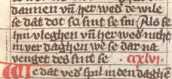 dannen vn̄ her wed de vule
se dat dot so sint se sin Als se
hin vleghen vn̄ her wed nicht
in ver daghen we se dar na
venget des sint se cxlvi
We dat ved sint in den daghe